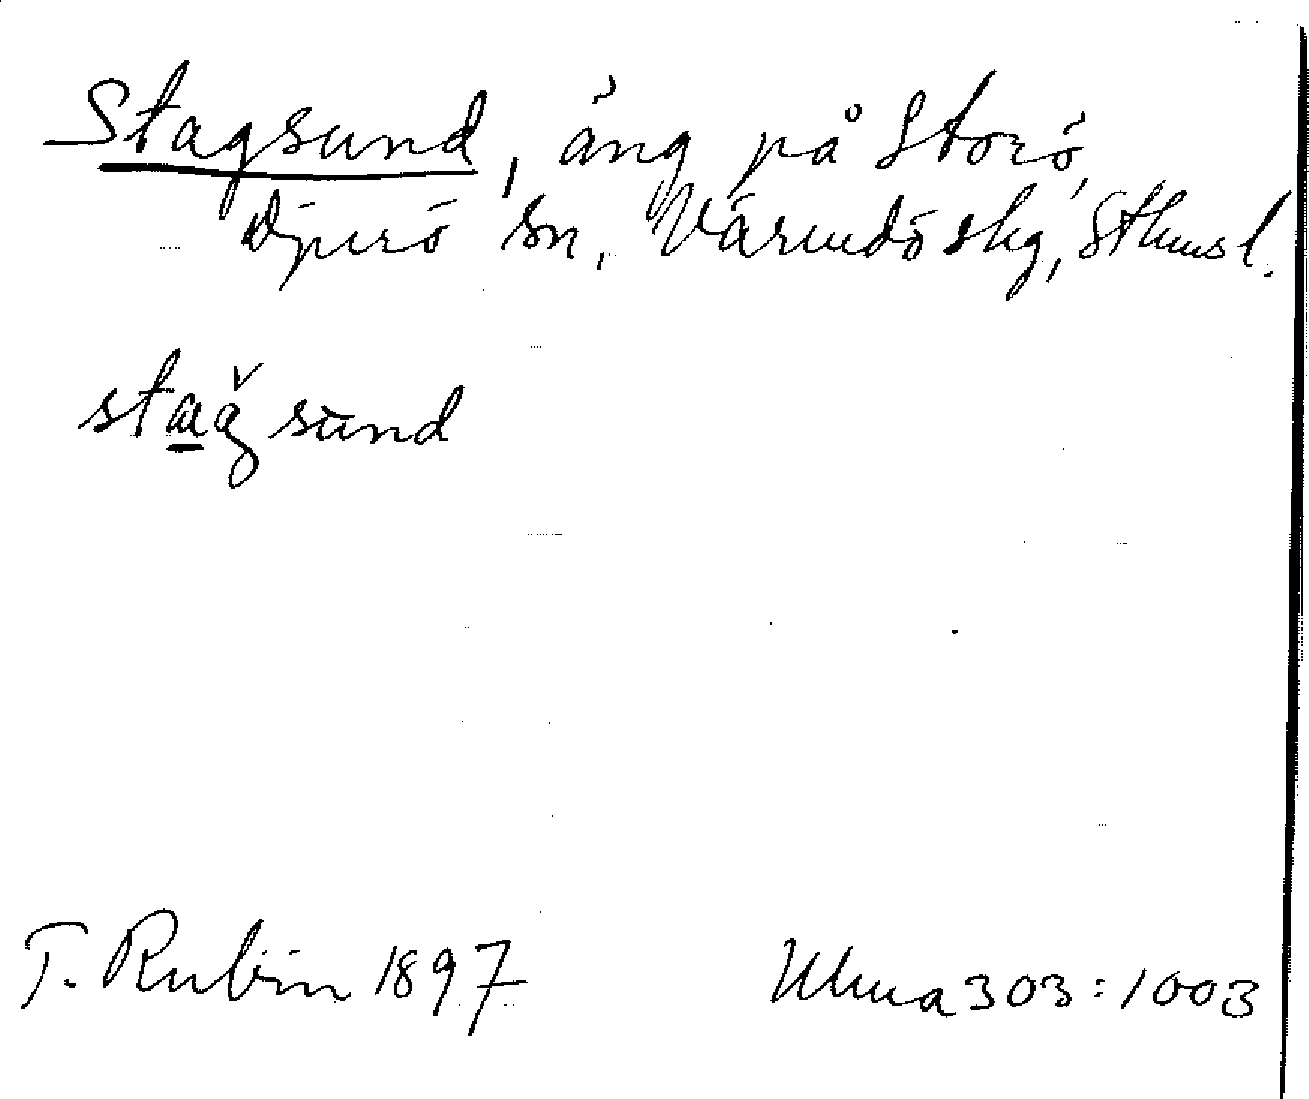 Stagsund, äng på Storö,
Djurö sn, Värmdö skg, Sthmsl.
staǧsund
T. Rubin 1897 Ulma 303:1003